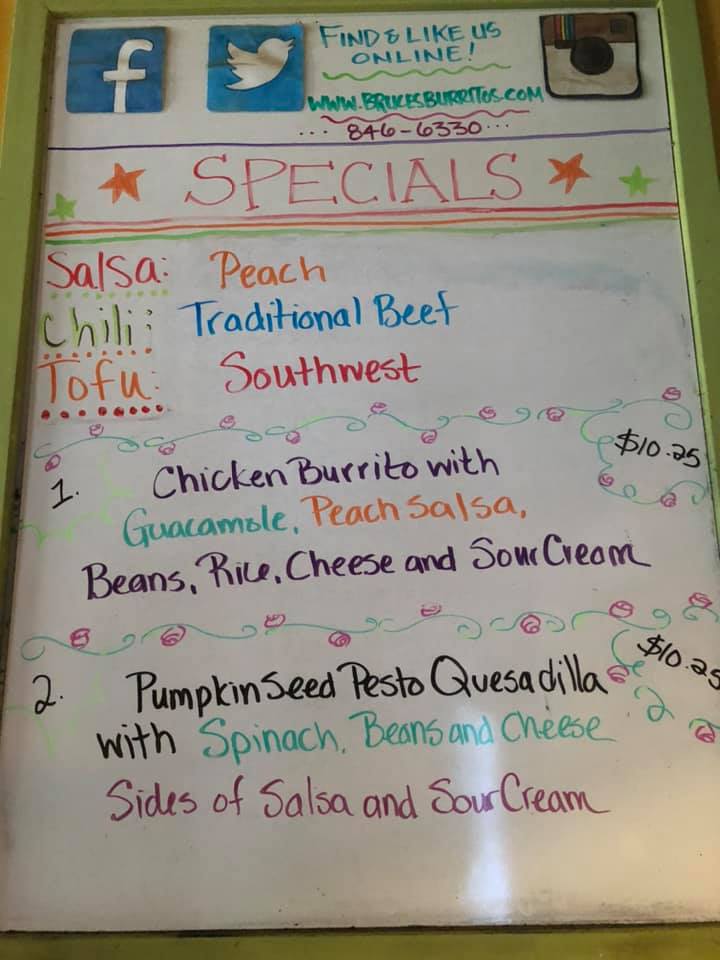 f
FIND & LIKE US
ONLINE!
WWW.BRUCESBURRITOS.COM
... 846-6330...
SPECIALS
Salsa: Peach
Chili: Traditional Beef
Tofu: Southwest
$10.25
1. Chicken Burrito with
Guacamole, Peach Salsa,
Beans, Rice, Cheese and Sour Cream
$10.25
2. Pumpkin Seed Pesto Quesadilla
with Spinach, Beans and Cheese
Sides of Salsa and Sour Cream